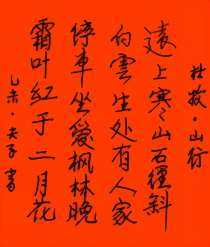 杜牧·山行
遠上寒山石徑斜
白雲生处有人家
停車坐爱枫林晚
霜叶红于二月花
乙未·夫子書